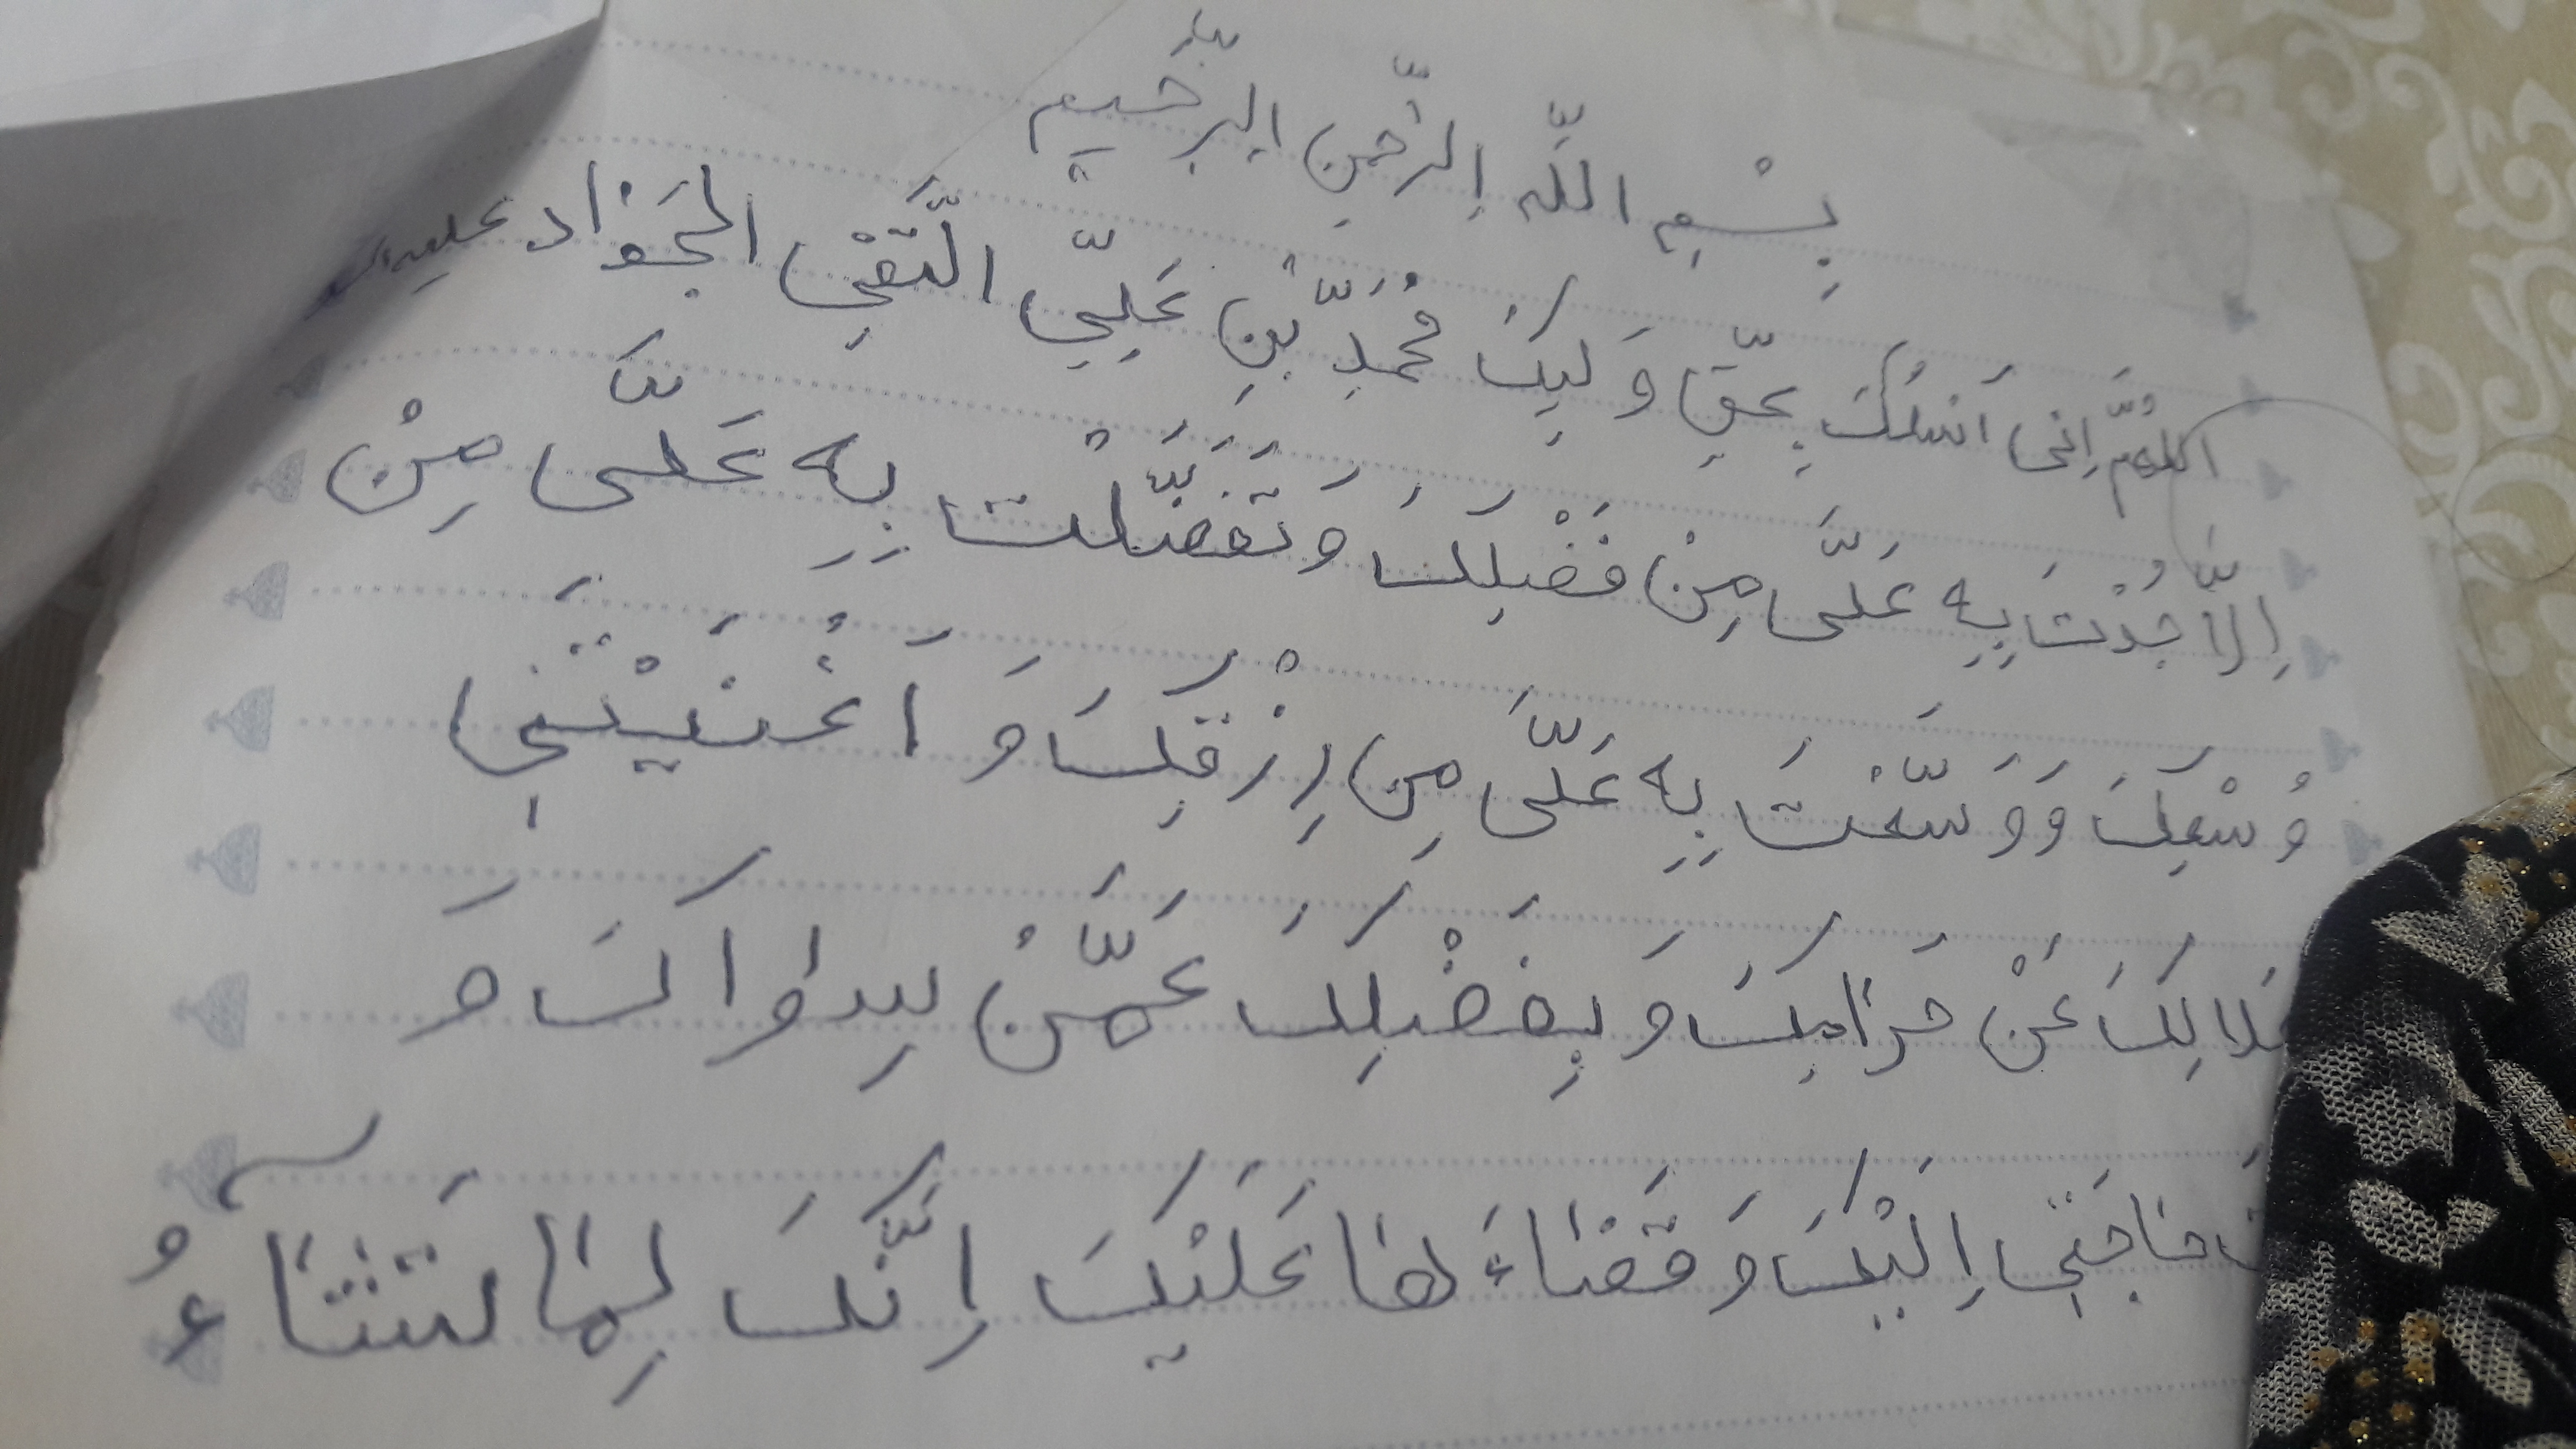 بِسْمِ اللّٰه الرَّحمنِ الرَّحیمِ
اللهُمَّ اِنی اَسئلُكَ بِحَقِّ وَلیِكَ مُحَمَّدِ بْنِ عَلِیّ التَّقیِ الجَوٰاد علیه
اِلاّٰ جُدْتَ بِهِ عَلَیَّ مِنْ فَضْلِكَ وَ تَفَضَّلْتَ بِهِ عَلَیَّ مِنْ
وُسْعِكَ وَ وَسَّعْتَ بِهِ عَلَیَّ مِن رِزْقِكَ وَ اَغْنَیْتَنِی
عَنْ حَرٰامِكَ وَ بِفَضْلِكَ عَمَّنْ سِوٰاكَ وَ
حٰاجَتِی اِلَیْكَ وَ قَضٰاءَهٰا عَلَیْكَ اِنَّكَ لِمٰا تَشٰاءُ